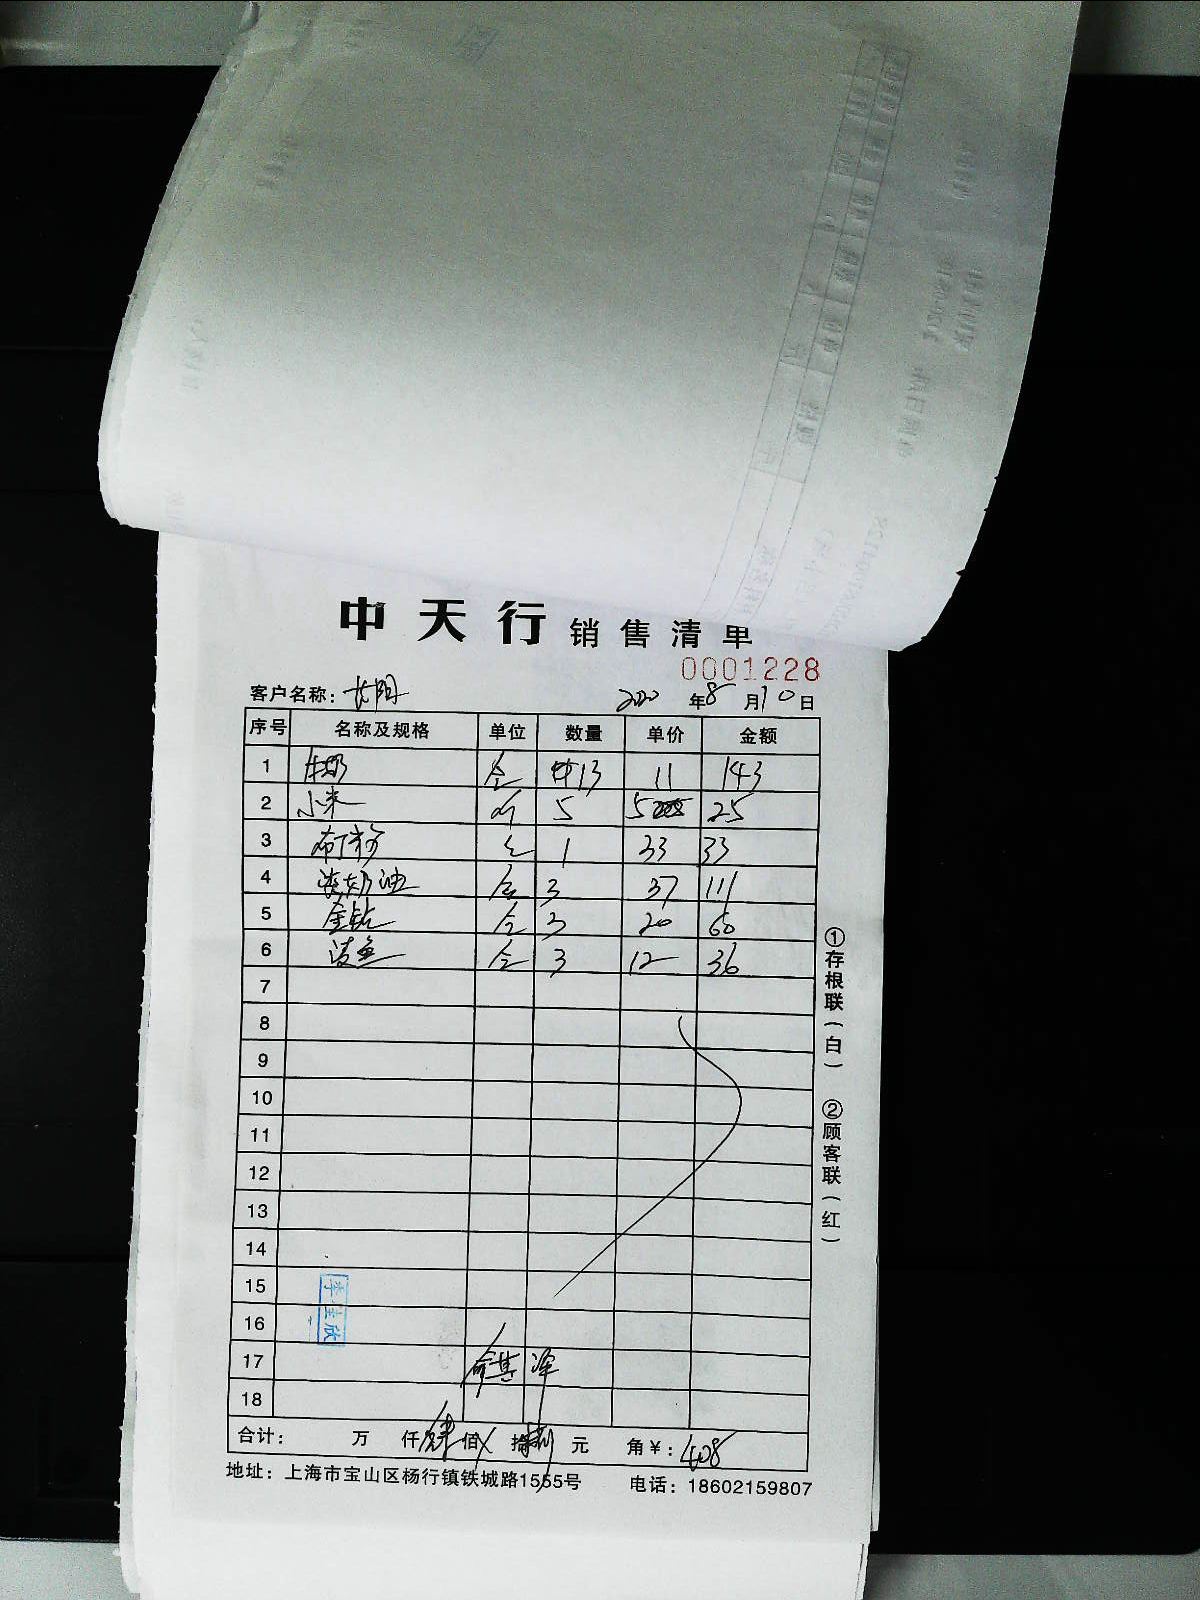 中天行 销售清单
0001228
客户名称：长阳 2020年8月10日
序号 名称及规格 单位 数量 单价 金额
1 牛奶 仓 13 11 143
2 小米 听 5 5 25
3 布丁粉 包 1 33 33
4 淡奶油 仓 3 37 111
5 金钻 仓 3 20 60
6 鱼 仓 3 12 36
7
8
9
10
11
12
13
14
15
16
17
18
李佳欣
合计： 万 仟 肆佰 拾捌元 角￥：408
地址：上海市宝山区杨行镇铁城路1555号 电话：18602159807
①存根联（白） ②顾客联（红）